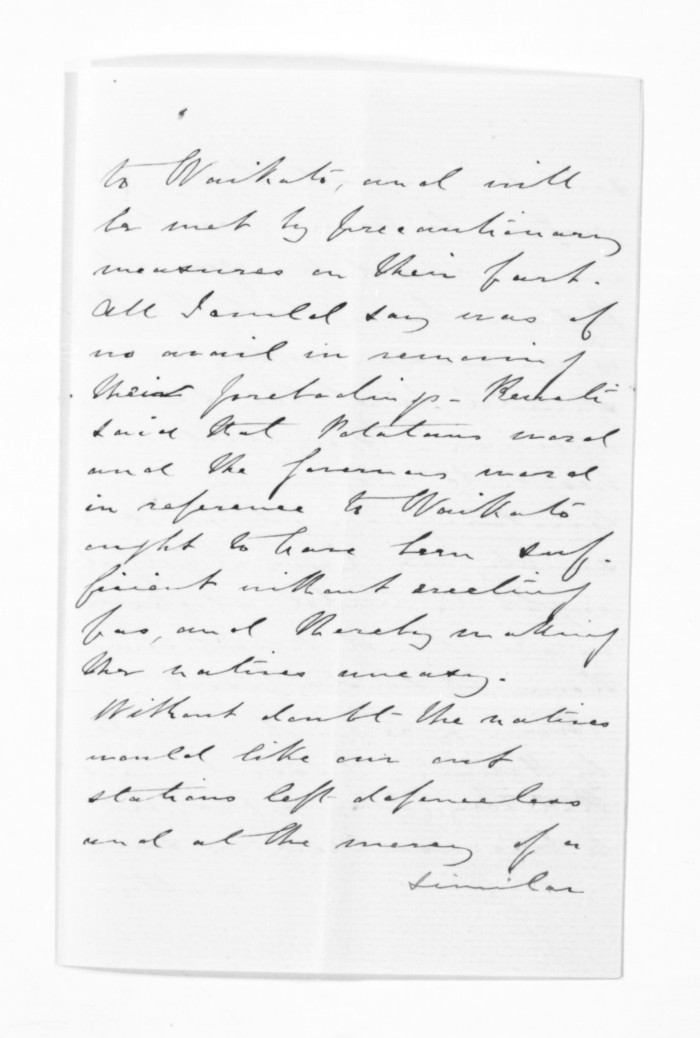 to Waikato, and will
be met by precautionary
measures on their part.
All I could say was of
no avail in removing
their forebodings - Renati
said that Potataus word
and the Governors word
in reference to Waikato
ought to have been suf-
ficient without erecting
pas, and thereby making
the natives uneasy.
Without doubt the natives
would like our out
stations left defenceless
and at the mercy of a
similar